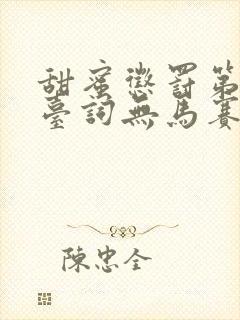 甜蜜懲罰第
臺詞無馬賽
陳忠全